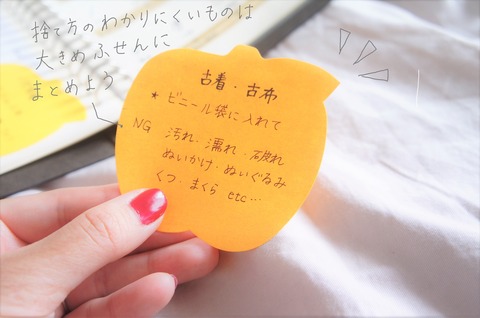 捨て方のわかりにくいものは
大きめふせんに
まとめよう
古着・古布
★ ビニール袋に入れて
NG 汚れ・濡れ・破れ
ぬいかけ・ぬいぐるみ
くつ・まくら etc…